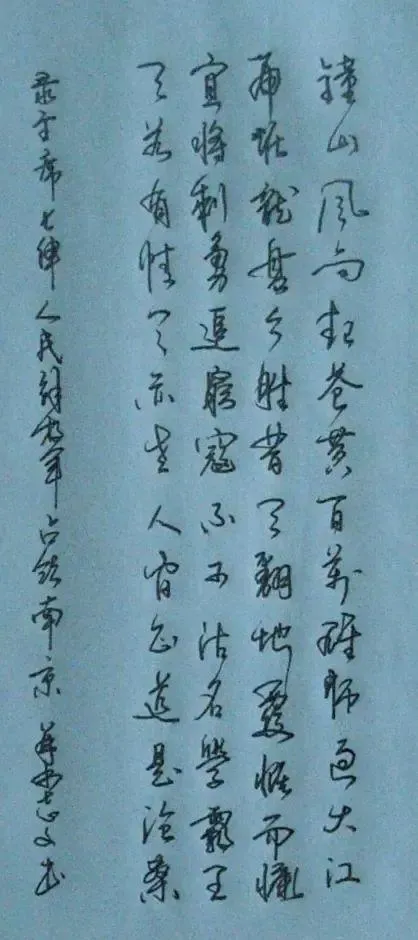 鐘山風雨起苍黄百萬雄師过大江
虎踞龍盘今胜昔天翻地覆慨而慷
宜将剩勇追窮寇不可沽名學霸王
天若有情天亦老人间正道是沧桑
录主席七律人民解放军占领南京 书